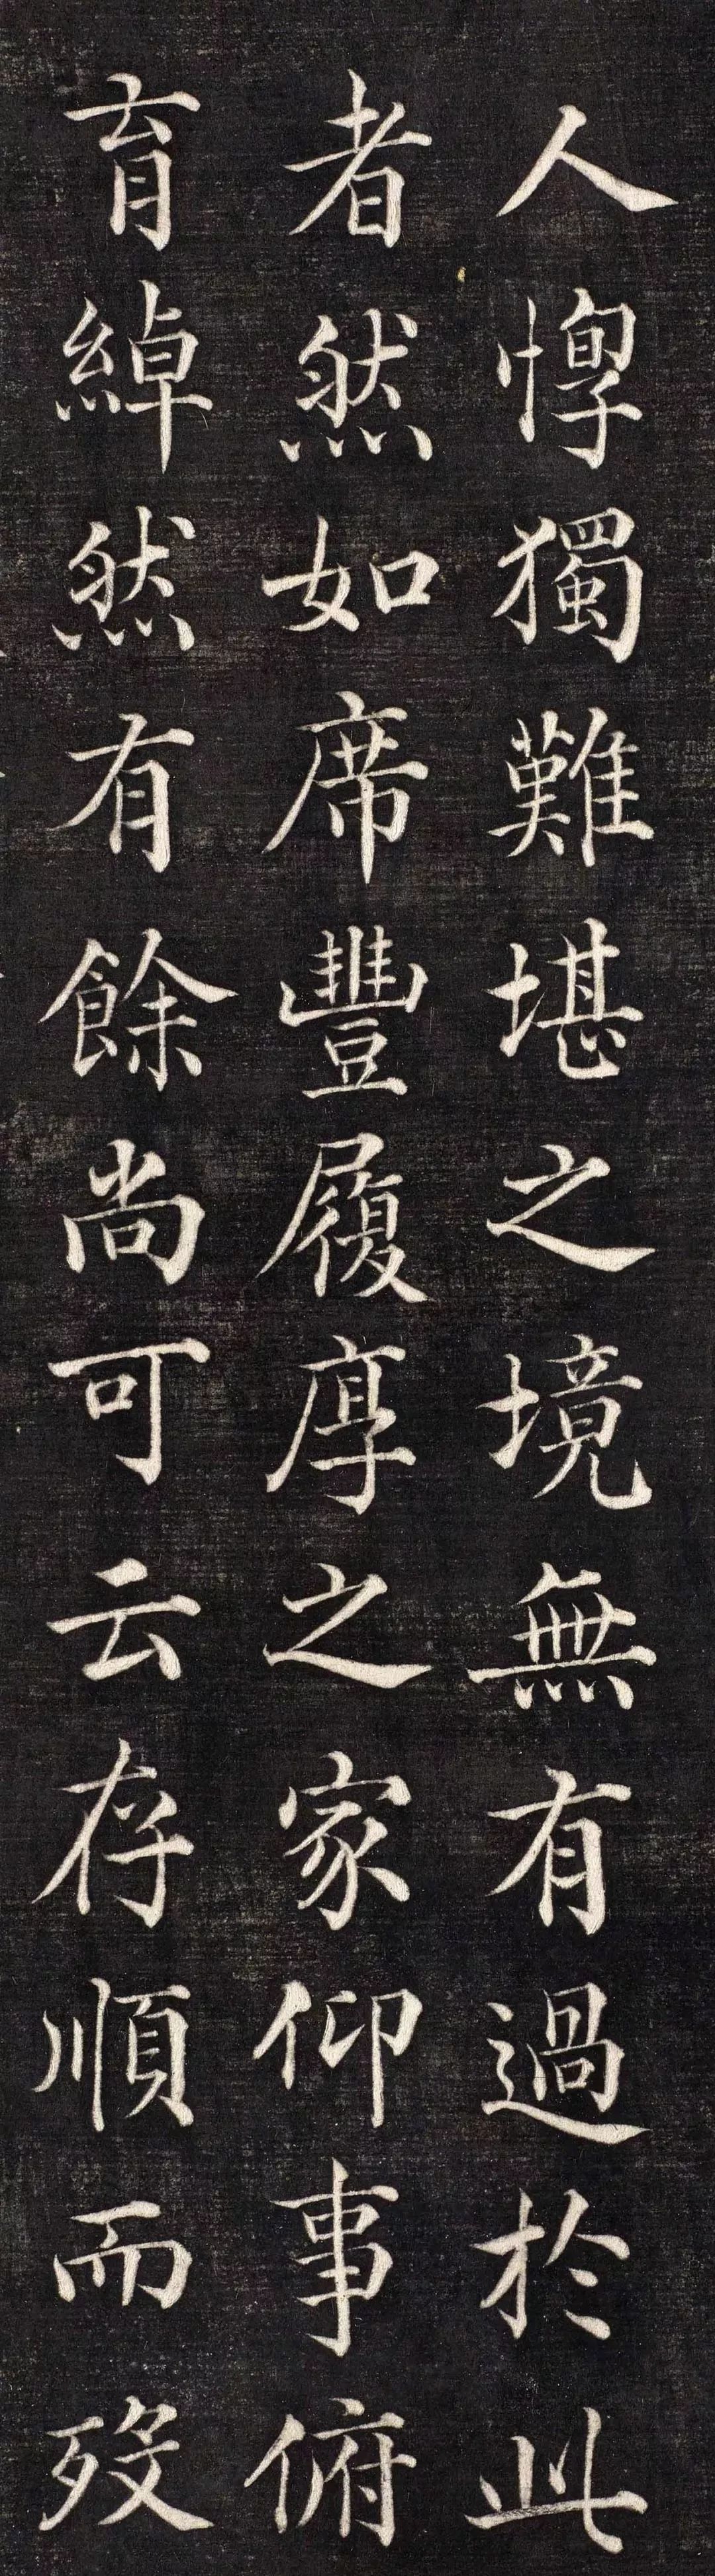 人惸獨難堪之境無有過於此
者然如席豐履厚之家仰事俯
育綽然有餘尚可云存順而歿